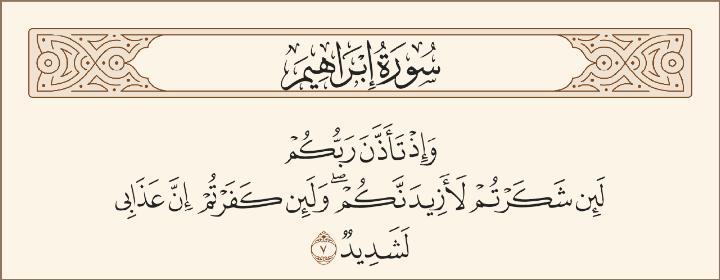 سُورَةُ إِبْرَاهِيمَ
وَإِذْ تَأَذَّنَ رَبُّكُمْ
لَئِن شَكَرْتُمْ لَأَزِيدَنَّكُمْ ۖ وَلَئِن كَفَرْتُمْ إِنَّ عَذَابِى
لَشَدِيدٌ ٧